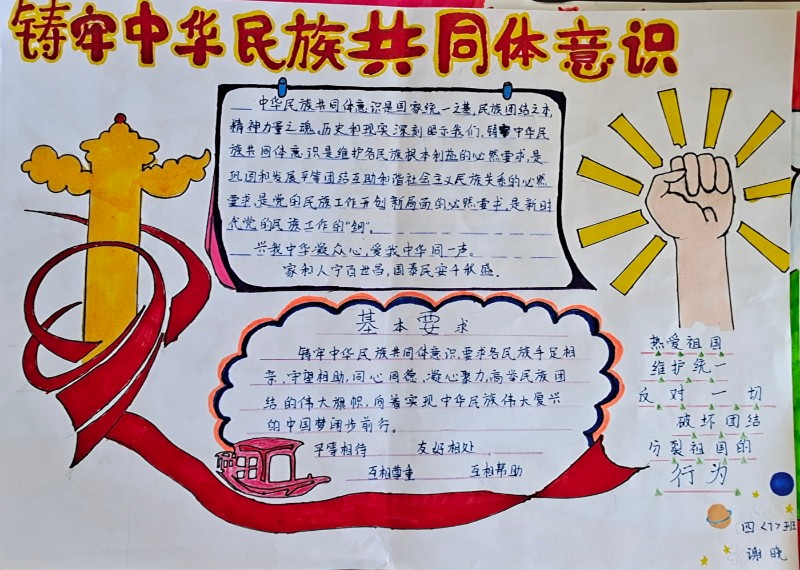 铸牢中华民族共同体意识
中华民族共同体意识是国家统一之基,民族团结之本,
精神力量之魂。历史和现实深刻昭示我们,铸牢中华民
族共同体意识是维护各民族根本利益的必然要求,是
巩固和发展平等团结互助和谐社会主义民族关系的必然
要求,是党的民族工作开创新局面的必然要求,是新时
代党的民族工作的“纲”。
兴我中华凝众心,爱我中华同一声。
家和人宁百世昌,国泰民安千秋盛.
基本要求
铸牢中华民族共同体意识,要求各民族手足相
亲、守望相助,同心同德、凝心聚力,高举民族团
结的伟大旗帜,向着实现中华民族伟大复兴
的中国梦阔步前行。
平等相待 友好相处
互相尊重 互相帮助
热爱祖国
维护统一
反对一切
破坏团结
分裂祖国的
行为
四<1>班
谢晓